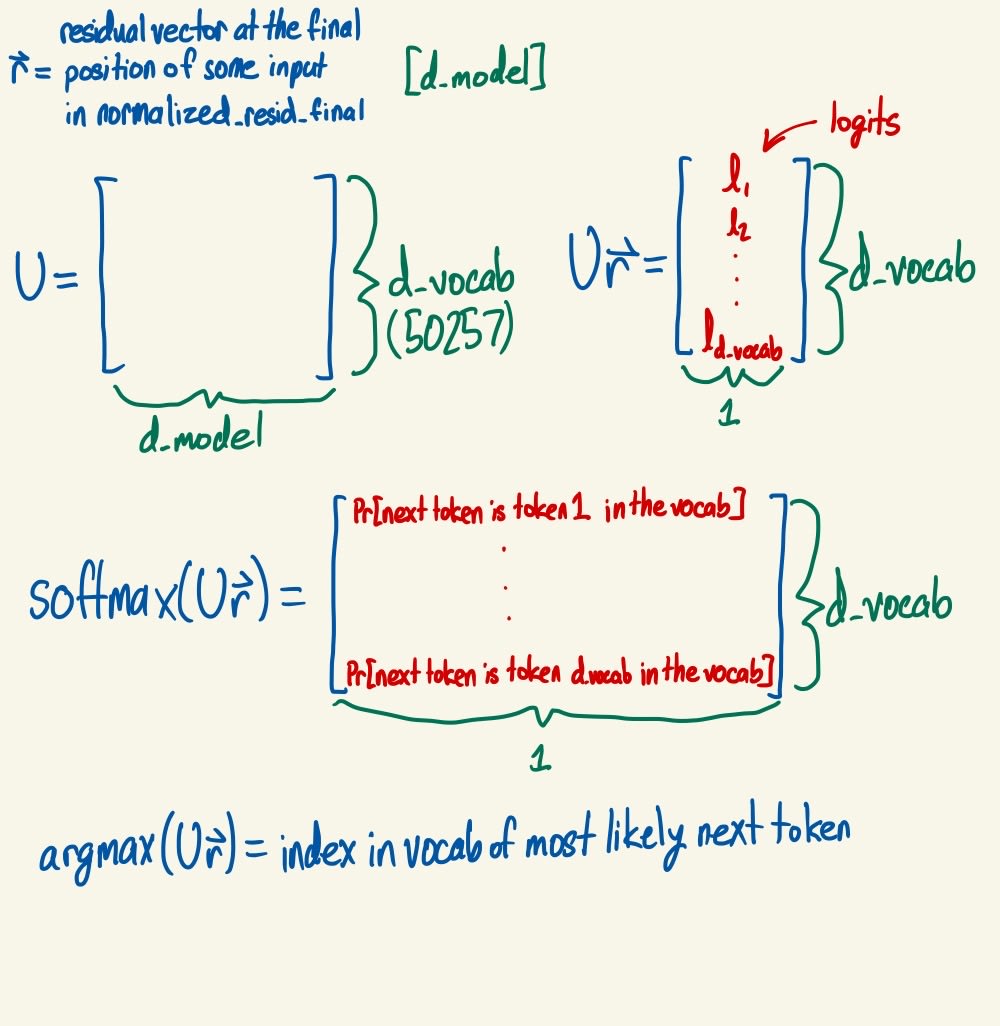 residual vector at the final
r⃗ = position of some input
in normalized_resid_final
[d_model]
logits
U =
d_vocab
(50257)
d_model
Ur⃗ =
l₁
l₂
.
.
.
l_d_vocab
d_vocab
1
softmax(Ur⃗) =
Pr[next token is token 1 in the vocab]
.
.
.
Pr[next token is token d_vocab in the vocab]
d_vocab
1
argmax(Ur⃗) = index in vocab of most likely next token